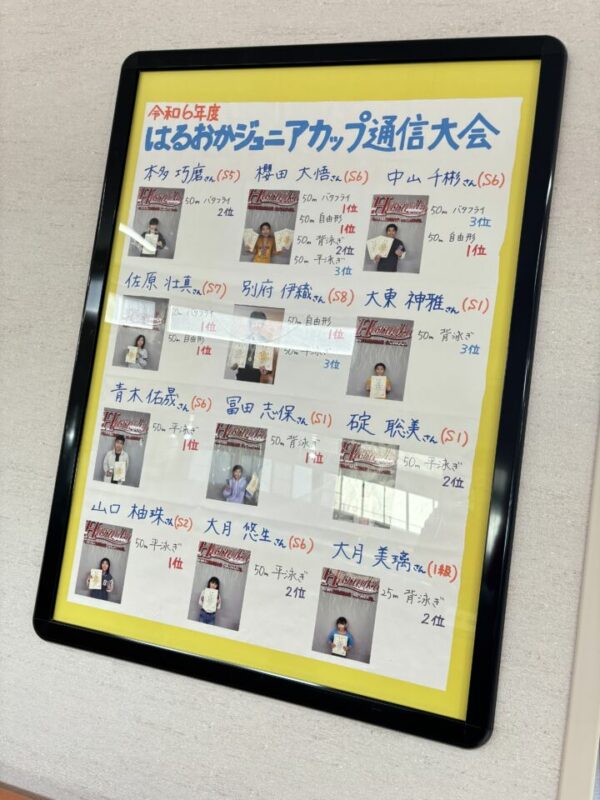 令和6年度
はるおかジュニアカップ通信大会
本多 巧磨さん(S5)
50m バタフライ
2位
櫻田 大悟さん(S6)
50m バタフライ
1位
50m 自由形
1位
50m 背泳ぎ
2位
50m 平泳ぎ
3位
中山 千彬さん(S6)
50m バタフライ
3位
50m 自由形
1位
佐原 壮真さん(S7)
50m バタフライ
1位
50m 自由形
1位
別府 伊織さん(S8)
50m 自由形
1位
50m 平泳ぎ
3位
大東 神雅さん(S1)
50m 背泳ぎ
3位
青木 佑晟さん(S6)
50m 平泳ぎ
1位
冨田 志保さん(S1)
50m 背泳ぎ
1位
碇 聡美さん(S1)
50m 平泳ぎ
2位
山口 柚珠さん(S2)
50m 平泳ぎ
1位
大月 悠生さん(S6)
50m 平泳ぎ
2位
大月 美璃さん(1級)
25m 背泳ぎ
2位